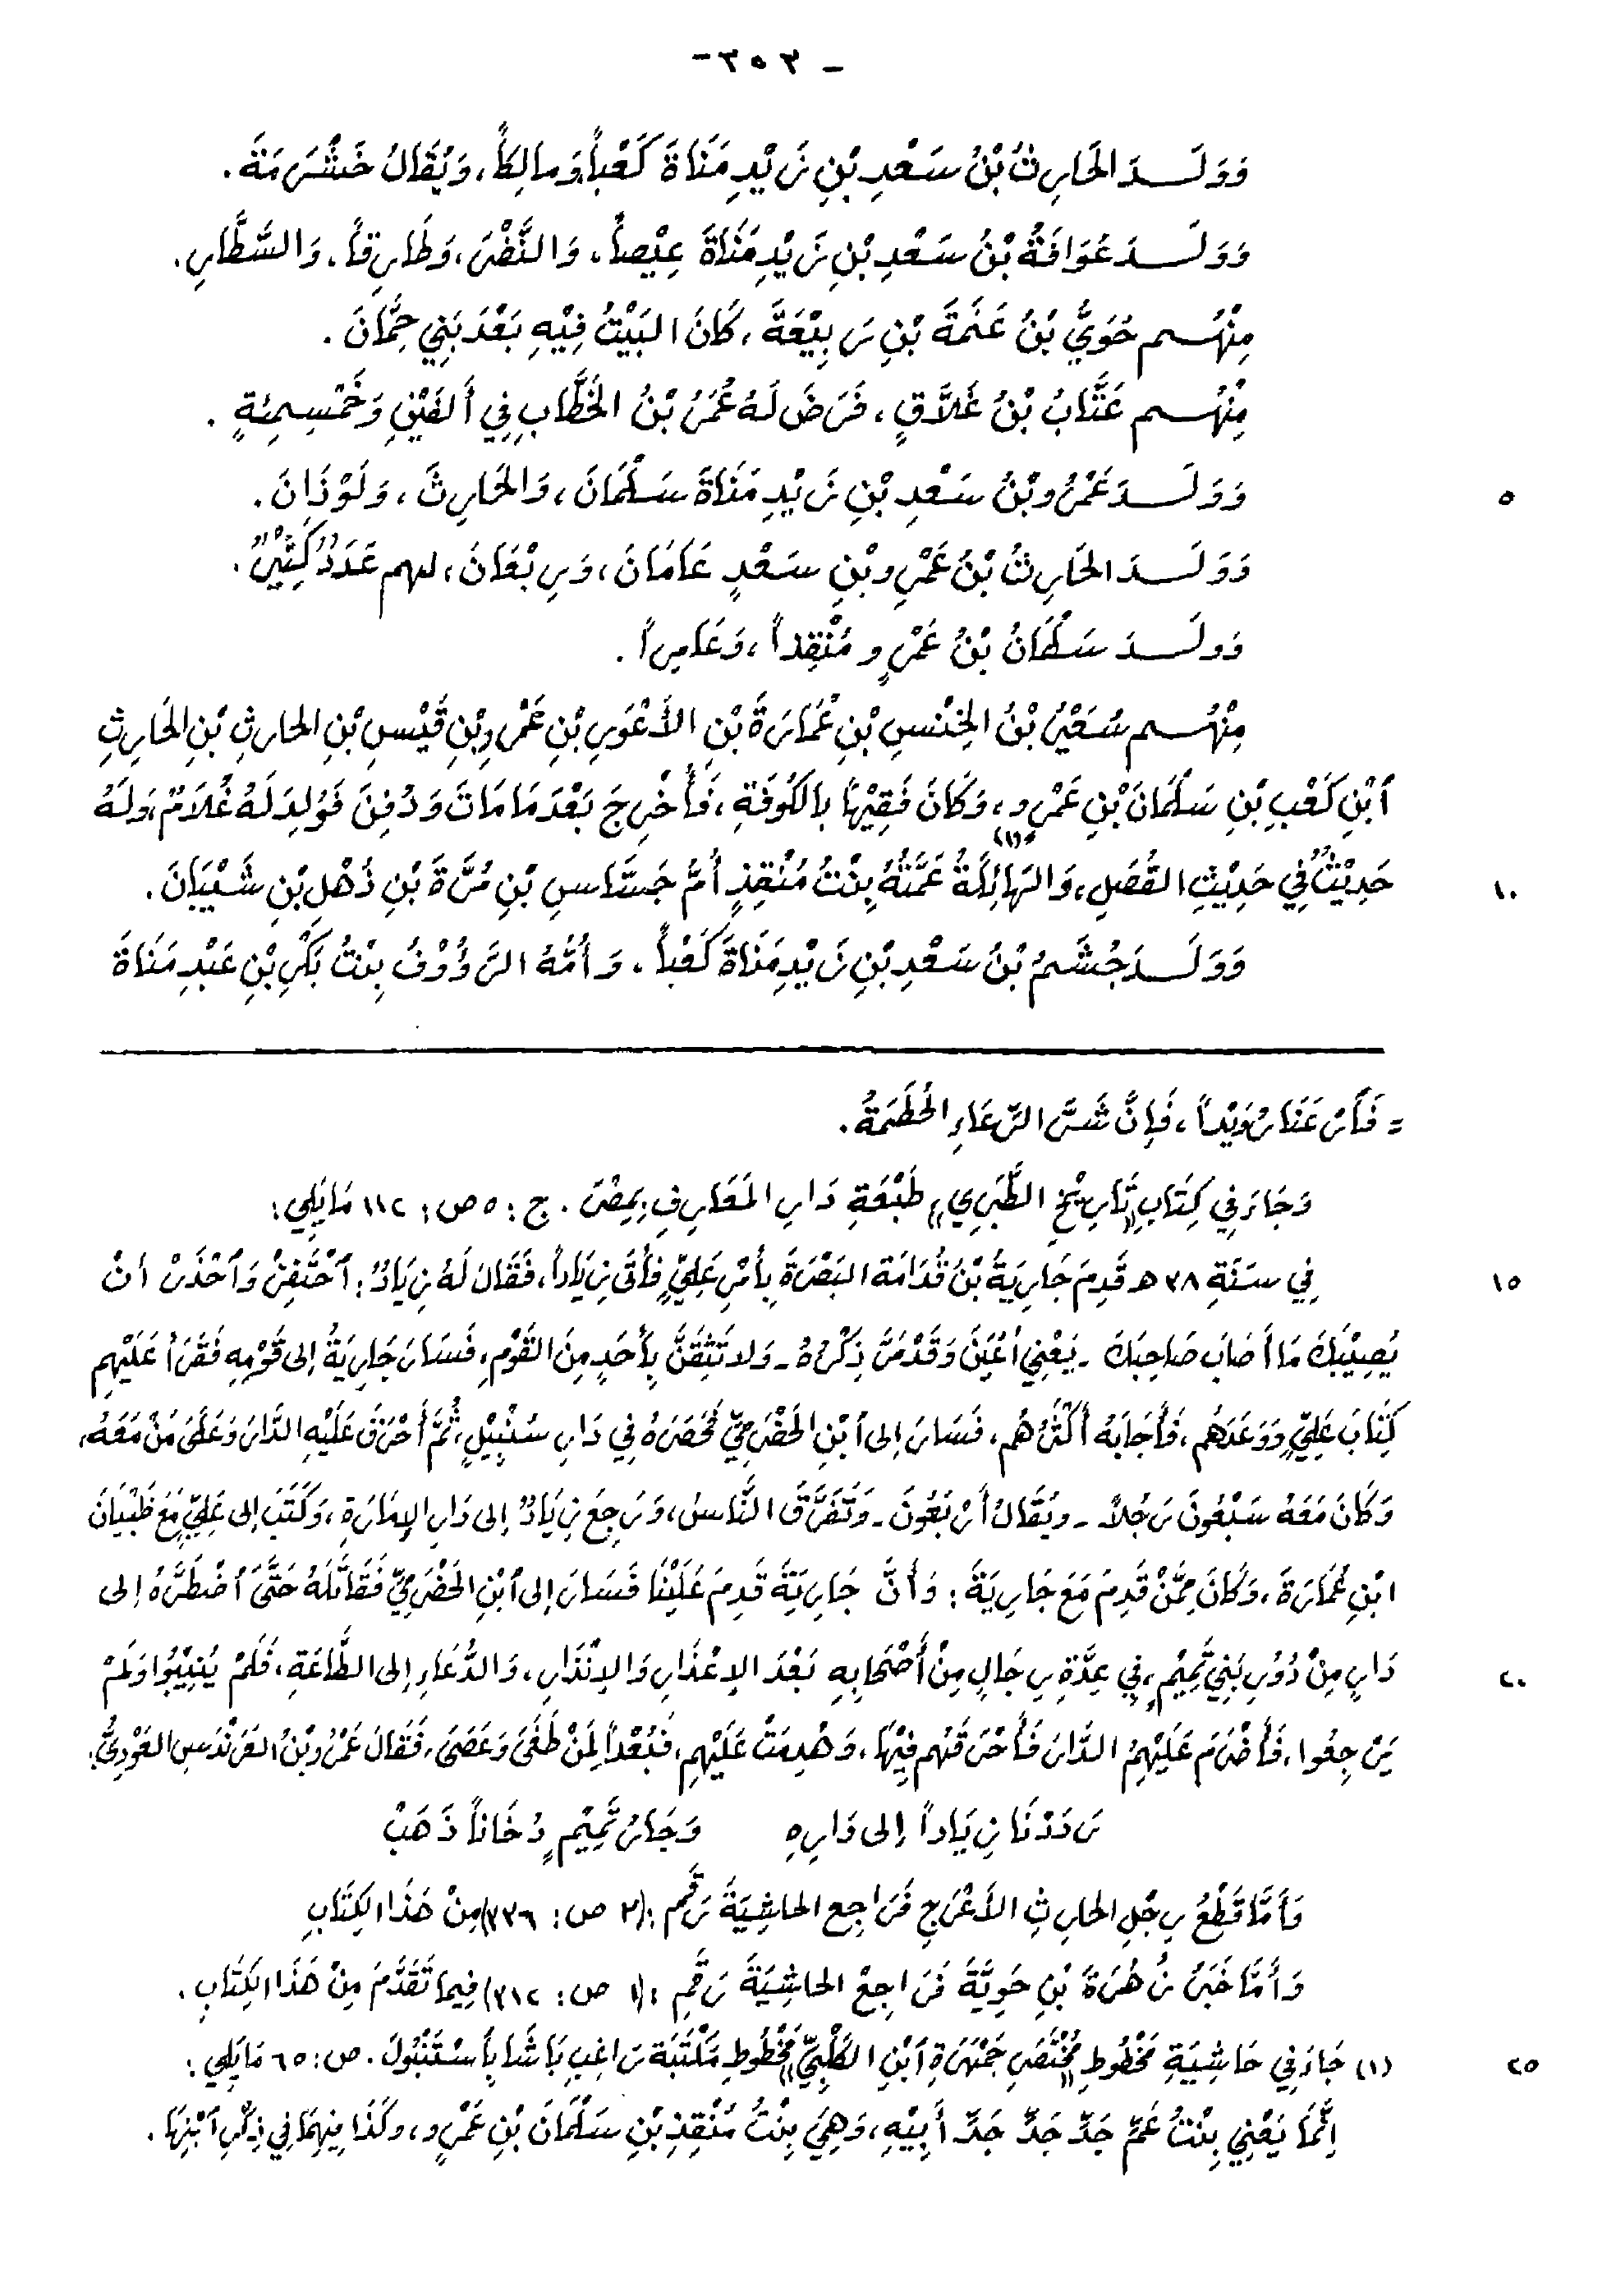 - ٣٥٣ -
وَوَلَـدَ الحَارِثُ بْنُ سَعْدِ بْنِ زَيْدِ مَنَاةَ كَعْباً، وَمالِكاً، وَيُقَالُ خَشْرَمَةَ.
وَوَلَـدَ عُوَافَةُ بْنُ سَعْدِ بْنِ زَيْدِ مَنَاةَ عِيْصاً، وَالنَّضْرَ، وَطَارِقاً، وَالشَّطَّارِ.
مِنْهُـم حُوَيُّ بْنُ غَنَمَةَ بْنِ رَبِيْعَةَ، كَانَ البَيْتُ فِيْهِ بَعْدَ بَنِي حِمَّانَ.
مِنْهُـم عَتَّابُ بْنُ غَلَّاقٍ، فَرَضَ لَهُ عُمَرُ بْنُ الخَطَّابِ فِي أَلفَيْنِ وَخَمْسِمِئَةٍ.
٥ وَوَلَـدَ عَمْرُو بْنُ سَعْدِ بْنِ زَيْدِ مَنَاةَ سَلْمَانَ، وَالحَارِثَ، وَلَوْذَانَ.
وَوَلَـدَ الحَارِثُ بْنُ عَمْرِو بْنِ سَعْدٍ عَامَانَ، وَرِبْعَانَ، لهم عَدَدٌ كَثِيْرٌ.
وَولَـدَ سَلْمَانُ بْنُ عَمْرٍو مُنْقِذاً، وَعَامِراً.
مِنْهُـم سُعَيْرُ بْنُ الخِنْسِ بْنِ عُمَارَةَ بْنِ الأَعْوَرِ بْنِ عَمْرِو بْنِ قَيْسِ بْنِ الحارِثِ بْنِ الحَارِثِ
ٱبْنِ كَعْبِ بْنِ سَلْمَانَ بْنِ عَمْرٍو، وَكَانَ فَقِيْهاً بِالكُوفَةِ، فَأُخْرِجَ بَعْدَ مَا مَاتَ وَدُفِنَ فَوُلِدَ لَهُ غُلَامٌ، وَلَهُ
١٠ حَدِيْثٌ فِي حَدِيْثِ القُضَلِ، وَالهَائِلَةُ عَمَّتُهُ (١) بِنْتُ مُنْقِذٍ أُمُّ جَسَّاسِ بْنِ مُرَّةَ بْنِ ذُهْلِ بْنِ شَيْبَانَ.
وَوَلَـدَ جُشَمُ بْنُ سَعْدِ بْنِ زَيْدِ مَنَاةَ كَعْباً، وَأُمُّهُ الرَّؤُوْفُ بِنْتُ بَكْرِ بْنِ عَبْدِ مَنَاةَ
= فَارْعَنَا رُوَيْداً، فَإِنَّ شَرَّ الرِّعَاءِ الحُطَمَةُ.
وَجَاءَ فِي كِتَابِ «تَارِيْخِ الطَّبَرِي» طَبْعَةِ دَارِ المَعَارِفِ بِمِصْرَ. ج: ٥ ص: ١١٢ مَا يَلِي:
١٥ فِي سَنَةِ ٣٨ هـ قَدِمَ جَارِيَةُ بْنُ قُدَامَة البَصْرَةَ بِأَمْرِ عَلِيٍّ فأَتَى زِيَاداً، فَقَالَ لَهُ زِيَادٌ: ٱحْتَفِزْ وَٱحْذَرْ أنْ
يُصِيْبَكَ مَا أَصَابَ صَاحِبَكَ - يَعْنِي أَعْيَنَ وَقَدْ مَرَّ ذِكْرُهُ - وَلا تَثِقَنَّ بِأَحَدٍ مِنَ القَوْمِ، فَسَارَ جَارِيَةُ إلى قَوْمِهِ فَقَرَأَ عَلَيْهِم
كِتَابَ عَلِيٍّ وَوَعَدَهُم، فَأَجَابَهُ أَكْثَرُهُم، فَسَارَ إلى ٱبْنِ الحَضْرَمِيِّ فَحَصَرَهُ فِي دَارِ سُنْبِيْلٍ، ثُمَّ أَحْرَقَ عَلَيْهِ الدَّارَ وَعَلَى مَنْ مَعَهُ،
وَكَانَ مَعَهُ سَبْعُونَ رَجُلاً - ويُقَالُ أَرْبَعُونَ - وَتَفَرَّقَ النَّاسُ، وَرَجِعَ زِيَادٌ إلى دَارِ الإِمَارَةِ، وَكَتَبَ إلى عَلِيٍّ مَعَ ظَبْيَانَ
ابْنِ عُمَارَةَ، وَكَانَ مِمَّنْ قَدِمَ مَعَ جَارِيَةَ: وَأَنَّ جَارِيَةَ قَدِمَ عَلَيْنَا فَسَارَ إلى ٱبْنِ الحَضْرَمِيِّ فَقَاتَلَهُ حَتَّى ٱضْطَرَّهُ إلى
٢٠ دَارٍ مِنْ دُوْرِ بَنِي تَمِيْمٍ، فِي عِدَّةِ رِجَالٍ مِنْ أَصْحَابِهِ بَعْدَ الإِعْذَارِ وَالإِنْذَارِ، وَالدُّعَاءِ إلى الطَّاعَةِ، فَلَمْ يُنِيْبُوا وَلَمْ
يَرْجِعُوا، فَأَضْرَمَ عَلَيْهِمُ الدَّارَ فَأَحْرَقَهُم فِيْهَا، وَهُدِمَتْ عَلَيْهِم، فَبُعْداً لِمَنْ طَغَى وَعَصَى، فَقَالَ عَمْرُو بْنُ العَرَنْدَسِ العَوْدِيُّ:
رَدَدْنَا زِيَاداً إلى دَارِهِ     وَجَارُ تَمِيْمٍ دُخَاناً ذَهَبْ
وَأَمَّا قَطْعُ رِجْلِ الحارِثِ الأَعْرَجِ فَرَاجِعِ الحاشِيَةَ رَقْم: (٢ ص: ٣٣٦) مِنْ هَذَا الكِتَابِ
وَأَمَّا خَبَرُ زُهْرَةَ بْنِ حَوِيَّةَ فَرَاجِعْ الحاشِيَةَ رَقْمِ: (١ ص: ٣١٢) فِيمَا تَقَدَّمَ مِنْ هَذَا الكِتَابِ.
٢٥ (١) جَاءَ فِي حَاشِيَةِ مَخْطُوطِ «مُخْتَصَرِ جَمْهَرَةِ ٱبْنِ الكَلْبِيِّ» مَخْطُوطِ مَكْتَبَة رَاغِبِ بَاشَا بِأَسْتَنْبُولَ. ص: ٦٥ مَا يَلِي:
إِنَّمَا يَعْنِي بِنْتُ عَمِّ جَدِّ جَدِّ جَدِّ أَبِيْهِ، وَهِيَ بِنْتُ مُنْقِذِ بْنِ سَلْمَانَ بْنِ عَمْرٍو، وكَذَا فِيْهِمَا فِي ذِكْرِ ٱبْنِهَا.